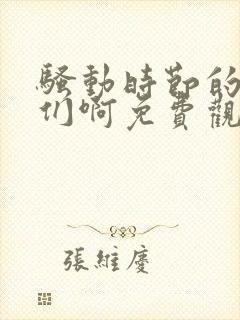 騷動時節的
们啊免費觀
張維慶